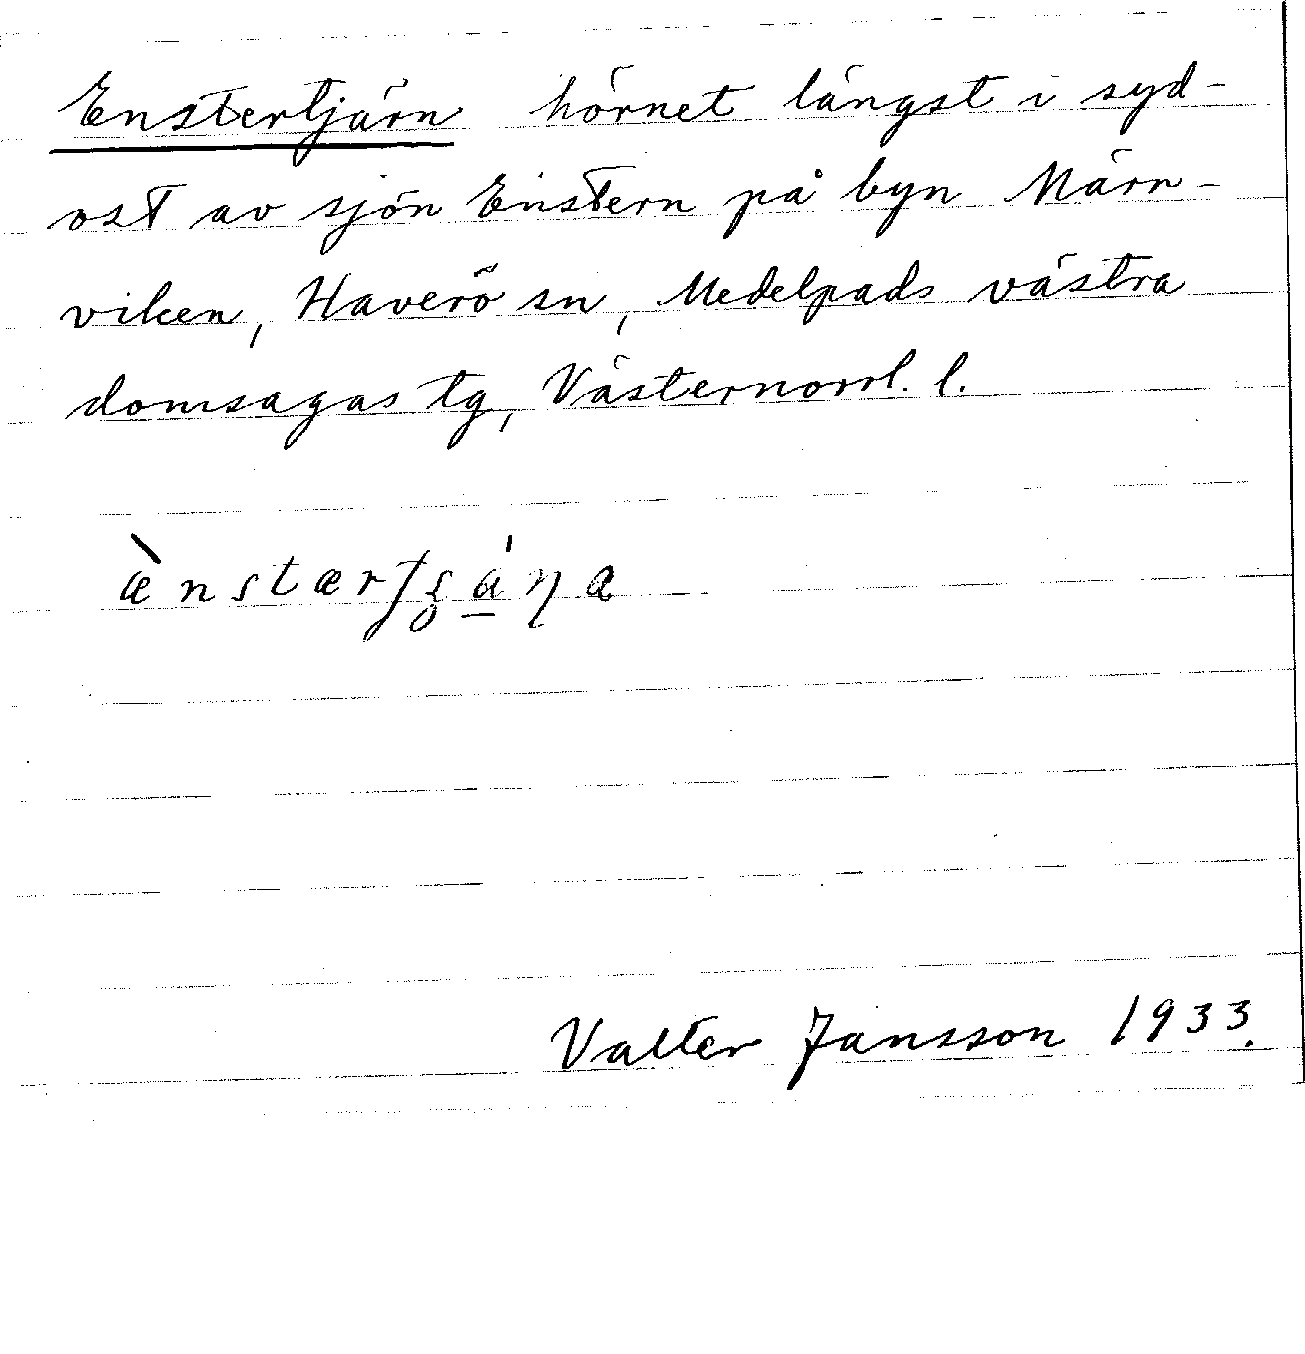 Enstertjärn hörnet längst i syd-
ost av sjön Enstern på byn Märn-
viken, Haverö sn, Medelpads västra
domsagas tg, Västernorrl. l.
Valter Jansson 1933.